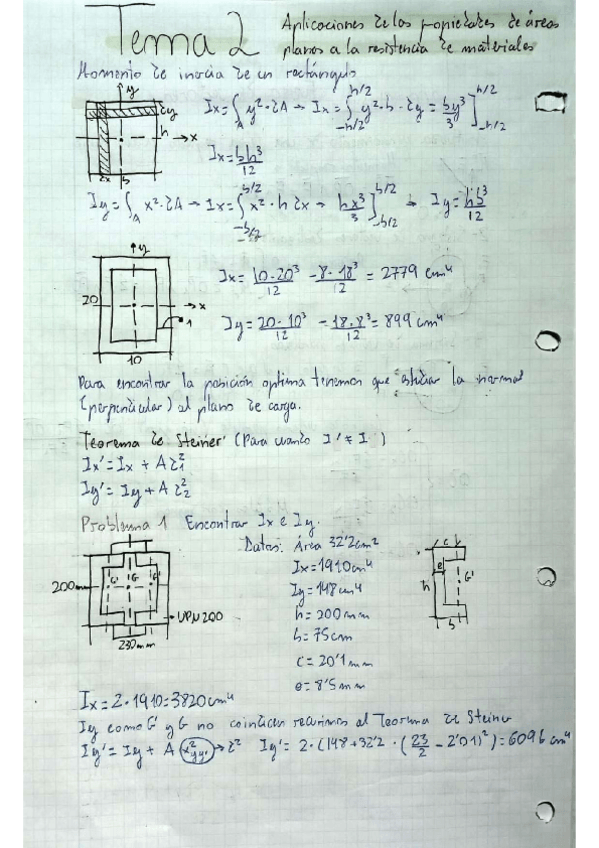 Tema 2 Aplicaciones de las propiedades de áreas
planas a la resistencia de materiales
Momento de inercia de un rectángulo
y
dy
h
x
dx
b
Ix = ∫A y²·dA → Ix = ∫-h/2^h/2 y²·b·dy = by³/3 ]-h/2^h/2
Ix = bh³/12
Iy = ∫A x²·dA → Ix = ∫-b/2^b/2 x²·h dx → hx³/3 ]-b/2^b/2 → Iy = hb³/12
y
20
x
1
10
Ix = 10·20³/12 - 8·18³/12 = 2779 cm⁴
Iy = 20·10³/12 - 18·8³/12 = 899 cm⁴
Para encontrar la posición optima tenemos que estudiar la normal
(perpendicular) al plano de carga.
Teorema de Steiner (Para cuando I' ≠ I)
Ix' = Ix + A d₁²
Iy' = Iy + A d₂²
Problema 1 Encontrar Ix e Iy.
Datos: Área 32'2cm²
Ix=1910cm⁴
Iy=148cm⁴
h=200mm
b=75cm
c=20'1mm
e=8'5mm
200mm
G' G G'
UPN 200
230mm
c
e
h
G'
b
Ix = 2·1910 = 3820cm⁴
Iy como G' y G no coinciden recurrimos al Teorema de Steiner
Iy' = Iy + A x²yy' → d² Iy' = 2·(148+32'2·(23/2 - 2'01)²) = 6096 cm⁴